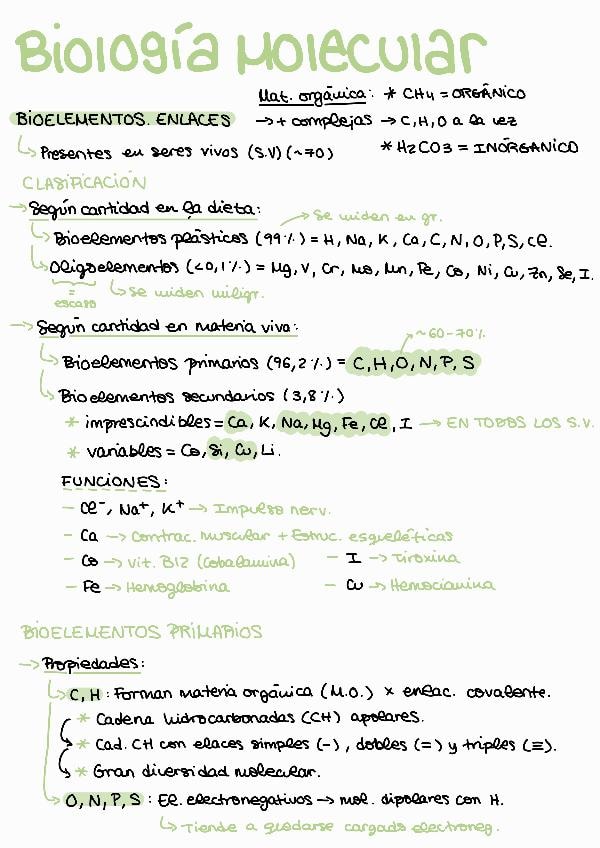 Biología Molecular
Mat. orgánica: * CH4 = ORGÁNICO
BIOELEMENTOS. ENLACES → + complejas → C, H, O a la vez
↳ Presentes en seres vivos (S.V) (~70) * H2CO3 = INORGANICO
CLASIFICACIÓN
→ Según cantidad en la dieta: → Se miden en gr.
↳ Bioelementos plásticos (99%) = H, Na, K, Ca, C, N, O, P, S, Cl.
↳ Oligoelementos (<0,1%) = Mg, V, Cr, Mo, Mn, Fe, Co, Ni, Cu, Zn, Se, I.
= escaso ↳ Se miden miligr.
→ Según cantidad en materia viva: → ~60-70%
↳ Bioelementos primarios (96,2%) = C, H, O, N, P, S
↳ Bioelementos secundarios (3,8%)
* imprescindibles = Ca, K, Na, Mg, Fe, Cl, I → EN TODOS LOS S.V.
* variables = Co, Si, Cu, Li.
FUNCIONES:
- Cl⁻, Na⁺, K⁺ → Impulso nerv.
- Ca → Contrac. muscular + Estruc. esqueléticas
- Co → Vit. B12 (Cobalamina) - I → Tiroxina
- Fe → Hemoglobina - Cu → Hemocianina
BIOELEMENTOS PRIMARIOS
→ Propiedades:
↳ C, H : Forman materia orgánica (M.O.) x enlac. covalente.
* Cadena hidrocarbonadas (CH) apolares.
* Cad. CH con elaces simples (-), dobles (=) y triples (≡).
* Gran diversidad molecular.
↳ O, N, P, S : El. electronegativos → mol. dipolares con H.
↳ Tiende a quedarse cargado electroneg.